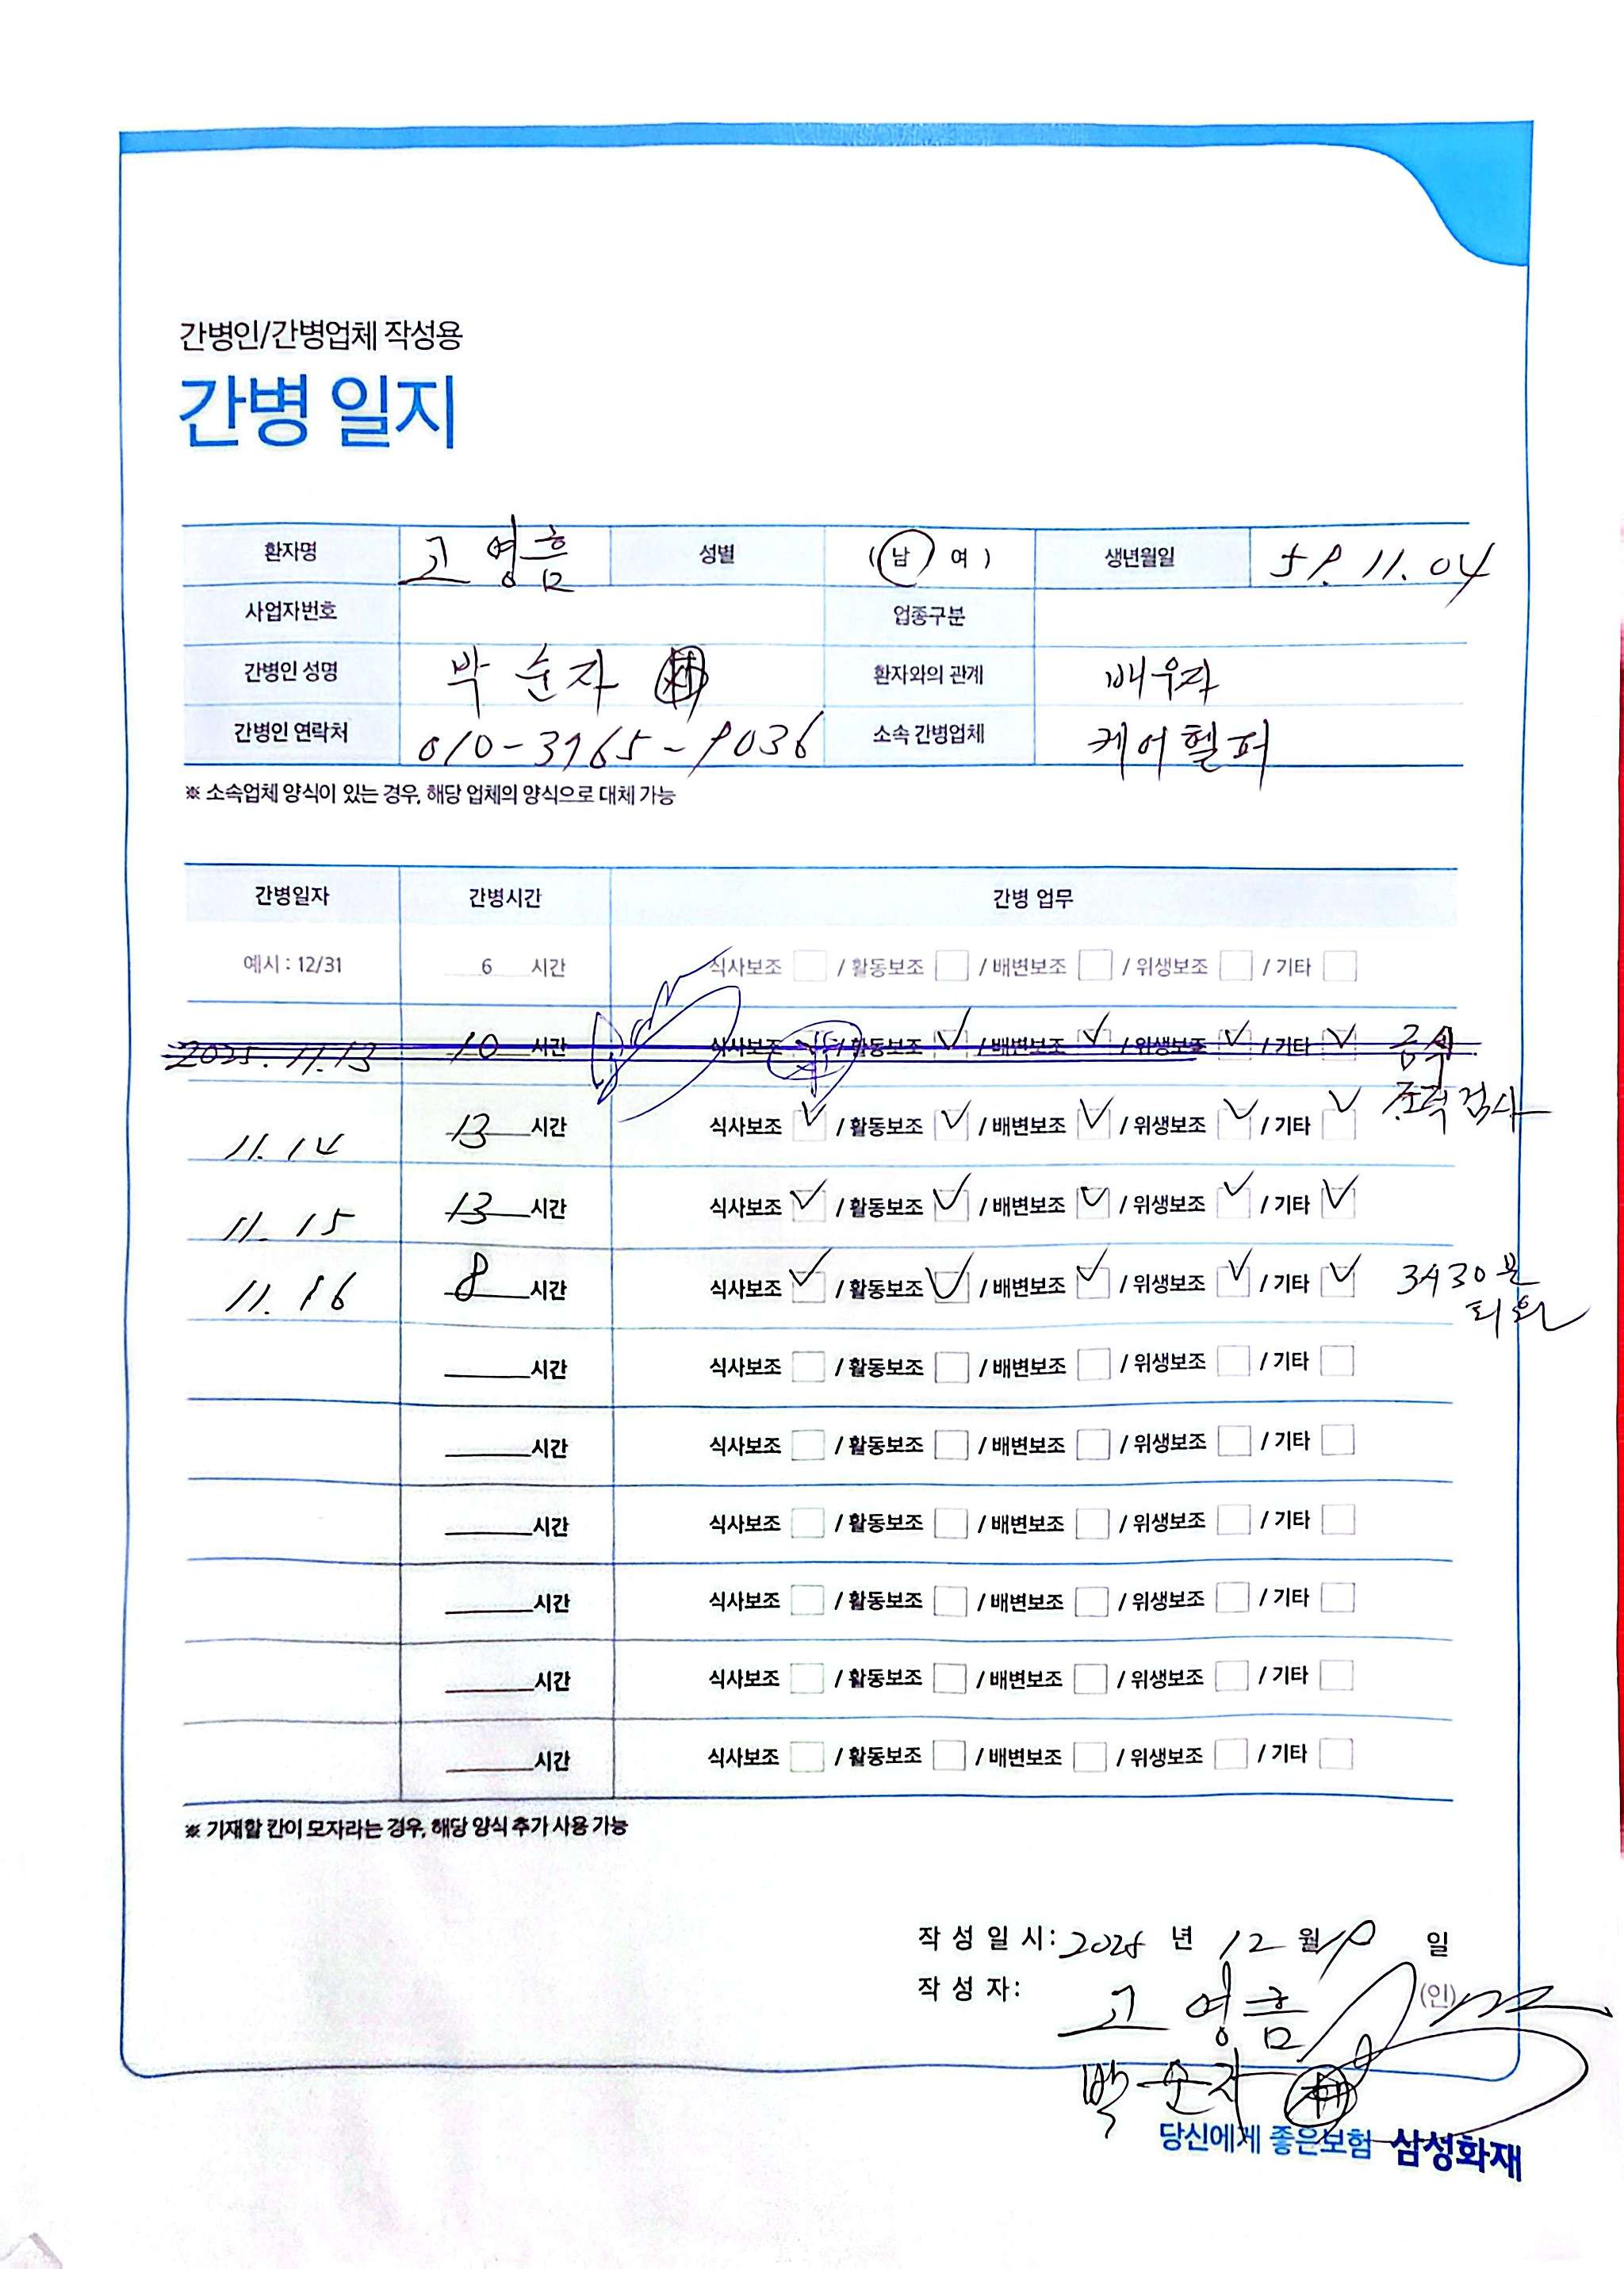 간병인/간병업체 작성용
간병 일지
환자명 고영흠 성별 ( 남 여 ) 생년월일 59. 11. 04
사업자번호 업종구분
간병인 성명 박순자 환자와의 관계 배우자
간병인 연락처 010-3965-9036 소속 간병업체 케어헬퍼
※ 소속업체 양식이 있는 경우, 해당 업체의 양식으로 대체 가능
간병일자 간병시간 간병 업무
예시 : 12/31 6 시간 식사보조 / 활동보조 / 배변보조 / 위생보조 / 기타
2025. 11. 13 10 시간 식사보조 / 활동보조 / 배변보조 / 위생보조 / 기타 금식
11. 14 13 시간 식사보조 / 활동보조 / 배변보조 / 위생보조 / 기타 검사
11. 15 13 시간 식사보조 / 활동보조 / 배변보조 / 위생보조 / 기타
11. 16 8 시간 식사보조 / 활동보조 / 배변보조 / 위생보조 / 기타 3시30분
퇴원
시간 식사보조 / 활동보조 / 배변보조 / 위생보조 / 기타
시간 식사보조 / 활동보조 / 배변보조 / 위생보조 / 기타
시간 식사보조 / 활동보조 / 배변보조 / 위생보조 / 기타
시간 식사보조 / 활동보조 / 배변보조 / 위생보조 / 기타
시간 식사보조 / 활동보조 / 배변보조 / 위생보조 / 기타
시간 식사보조 / 활동보조 / 배변보조 / 위생보조 / 기타
※ 기재할 칸이 모자라는 경우, 해당 양식 추가 사용 가능
작 성 일 시 : 2025 년 12 월 일
작 성 자 : 고영흠 (인)
박순자
당신에게 좋은보험 삼성화재